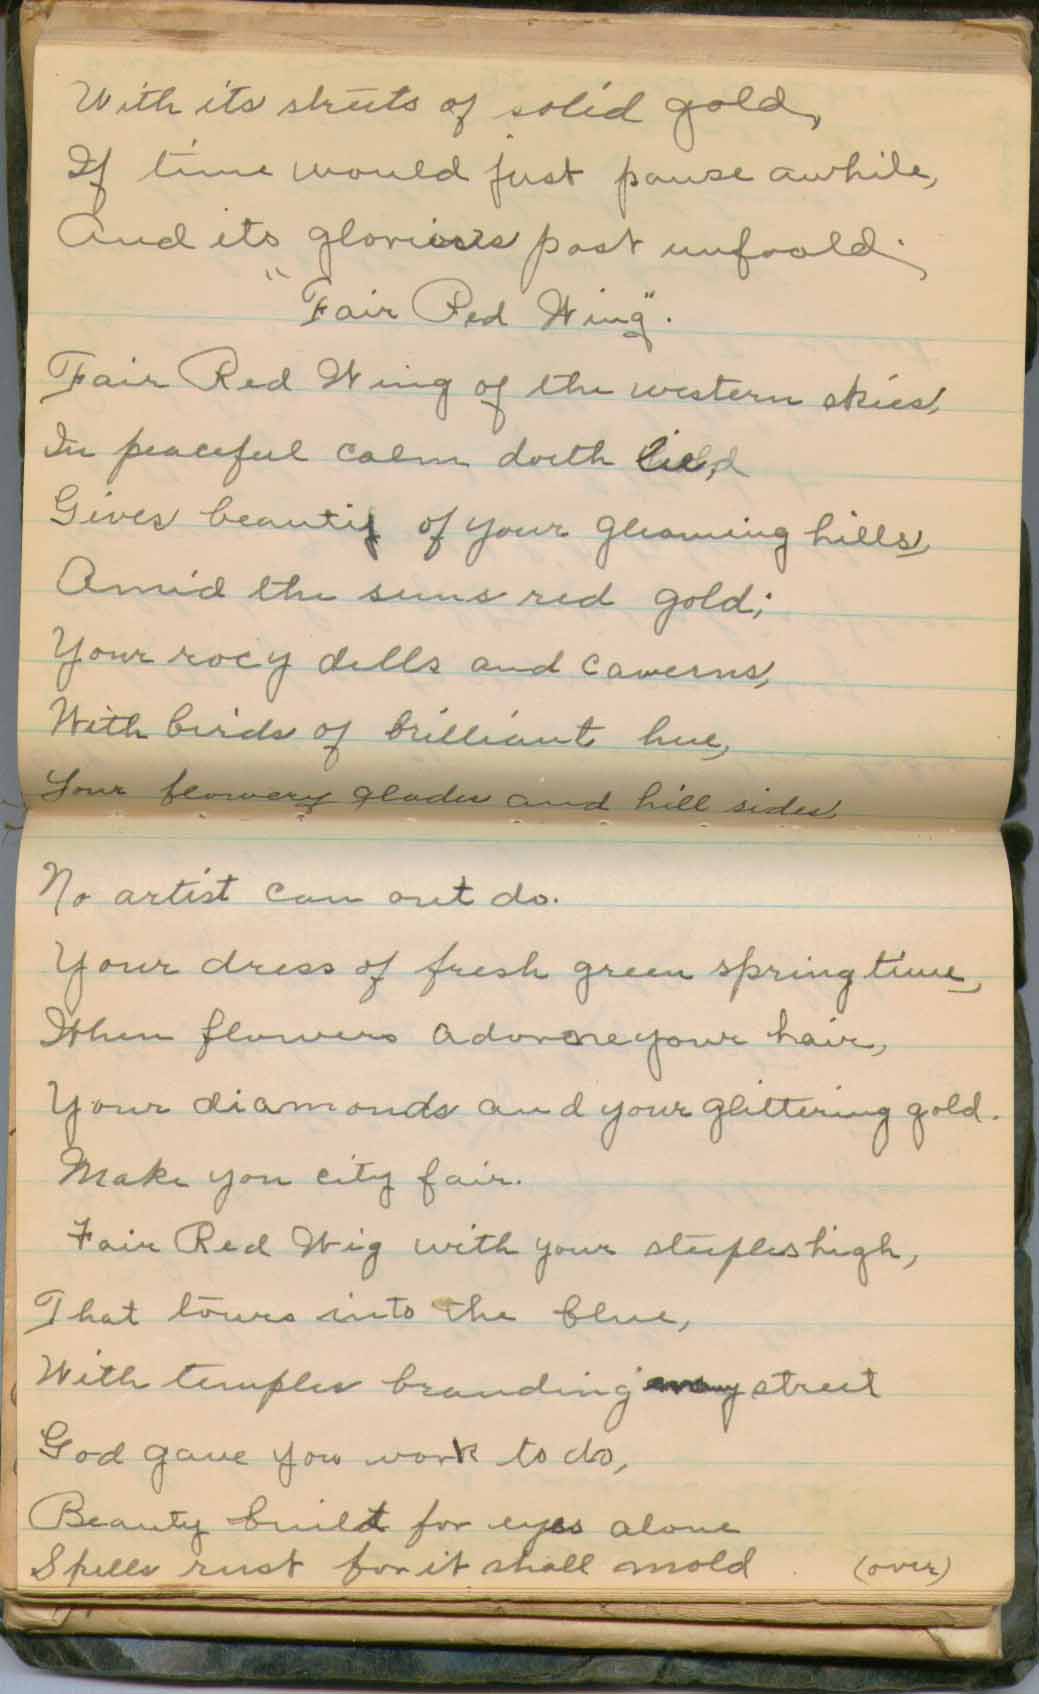 With its streets of solid gold,
If time would just pause awhile,
And its glorious past unfoold.
"Fair Red Wing".
Fair Red Wing of the western skies,
In peaceful calm doth lie,
Gives beautiy of your gleaming hills,
Amid the suns red gold;
Your rocy dells and caverns,
With birds of brilliant hue,
Your flowery glades and hill sides,
No artist can out do.
Your dress of fresh green spring time,
When flowers adorne your hair,
Your diamonds and your glittering gold.
Make you city fair.
Fair Red Wig with your steeples high,
That tours into the blue,
With temples branding street
God gave you work to do,
Beauty build for eyes alone
Spells rust for it shall mold (over)